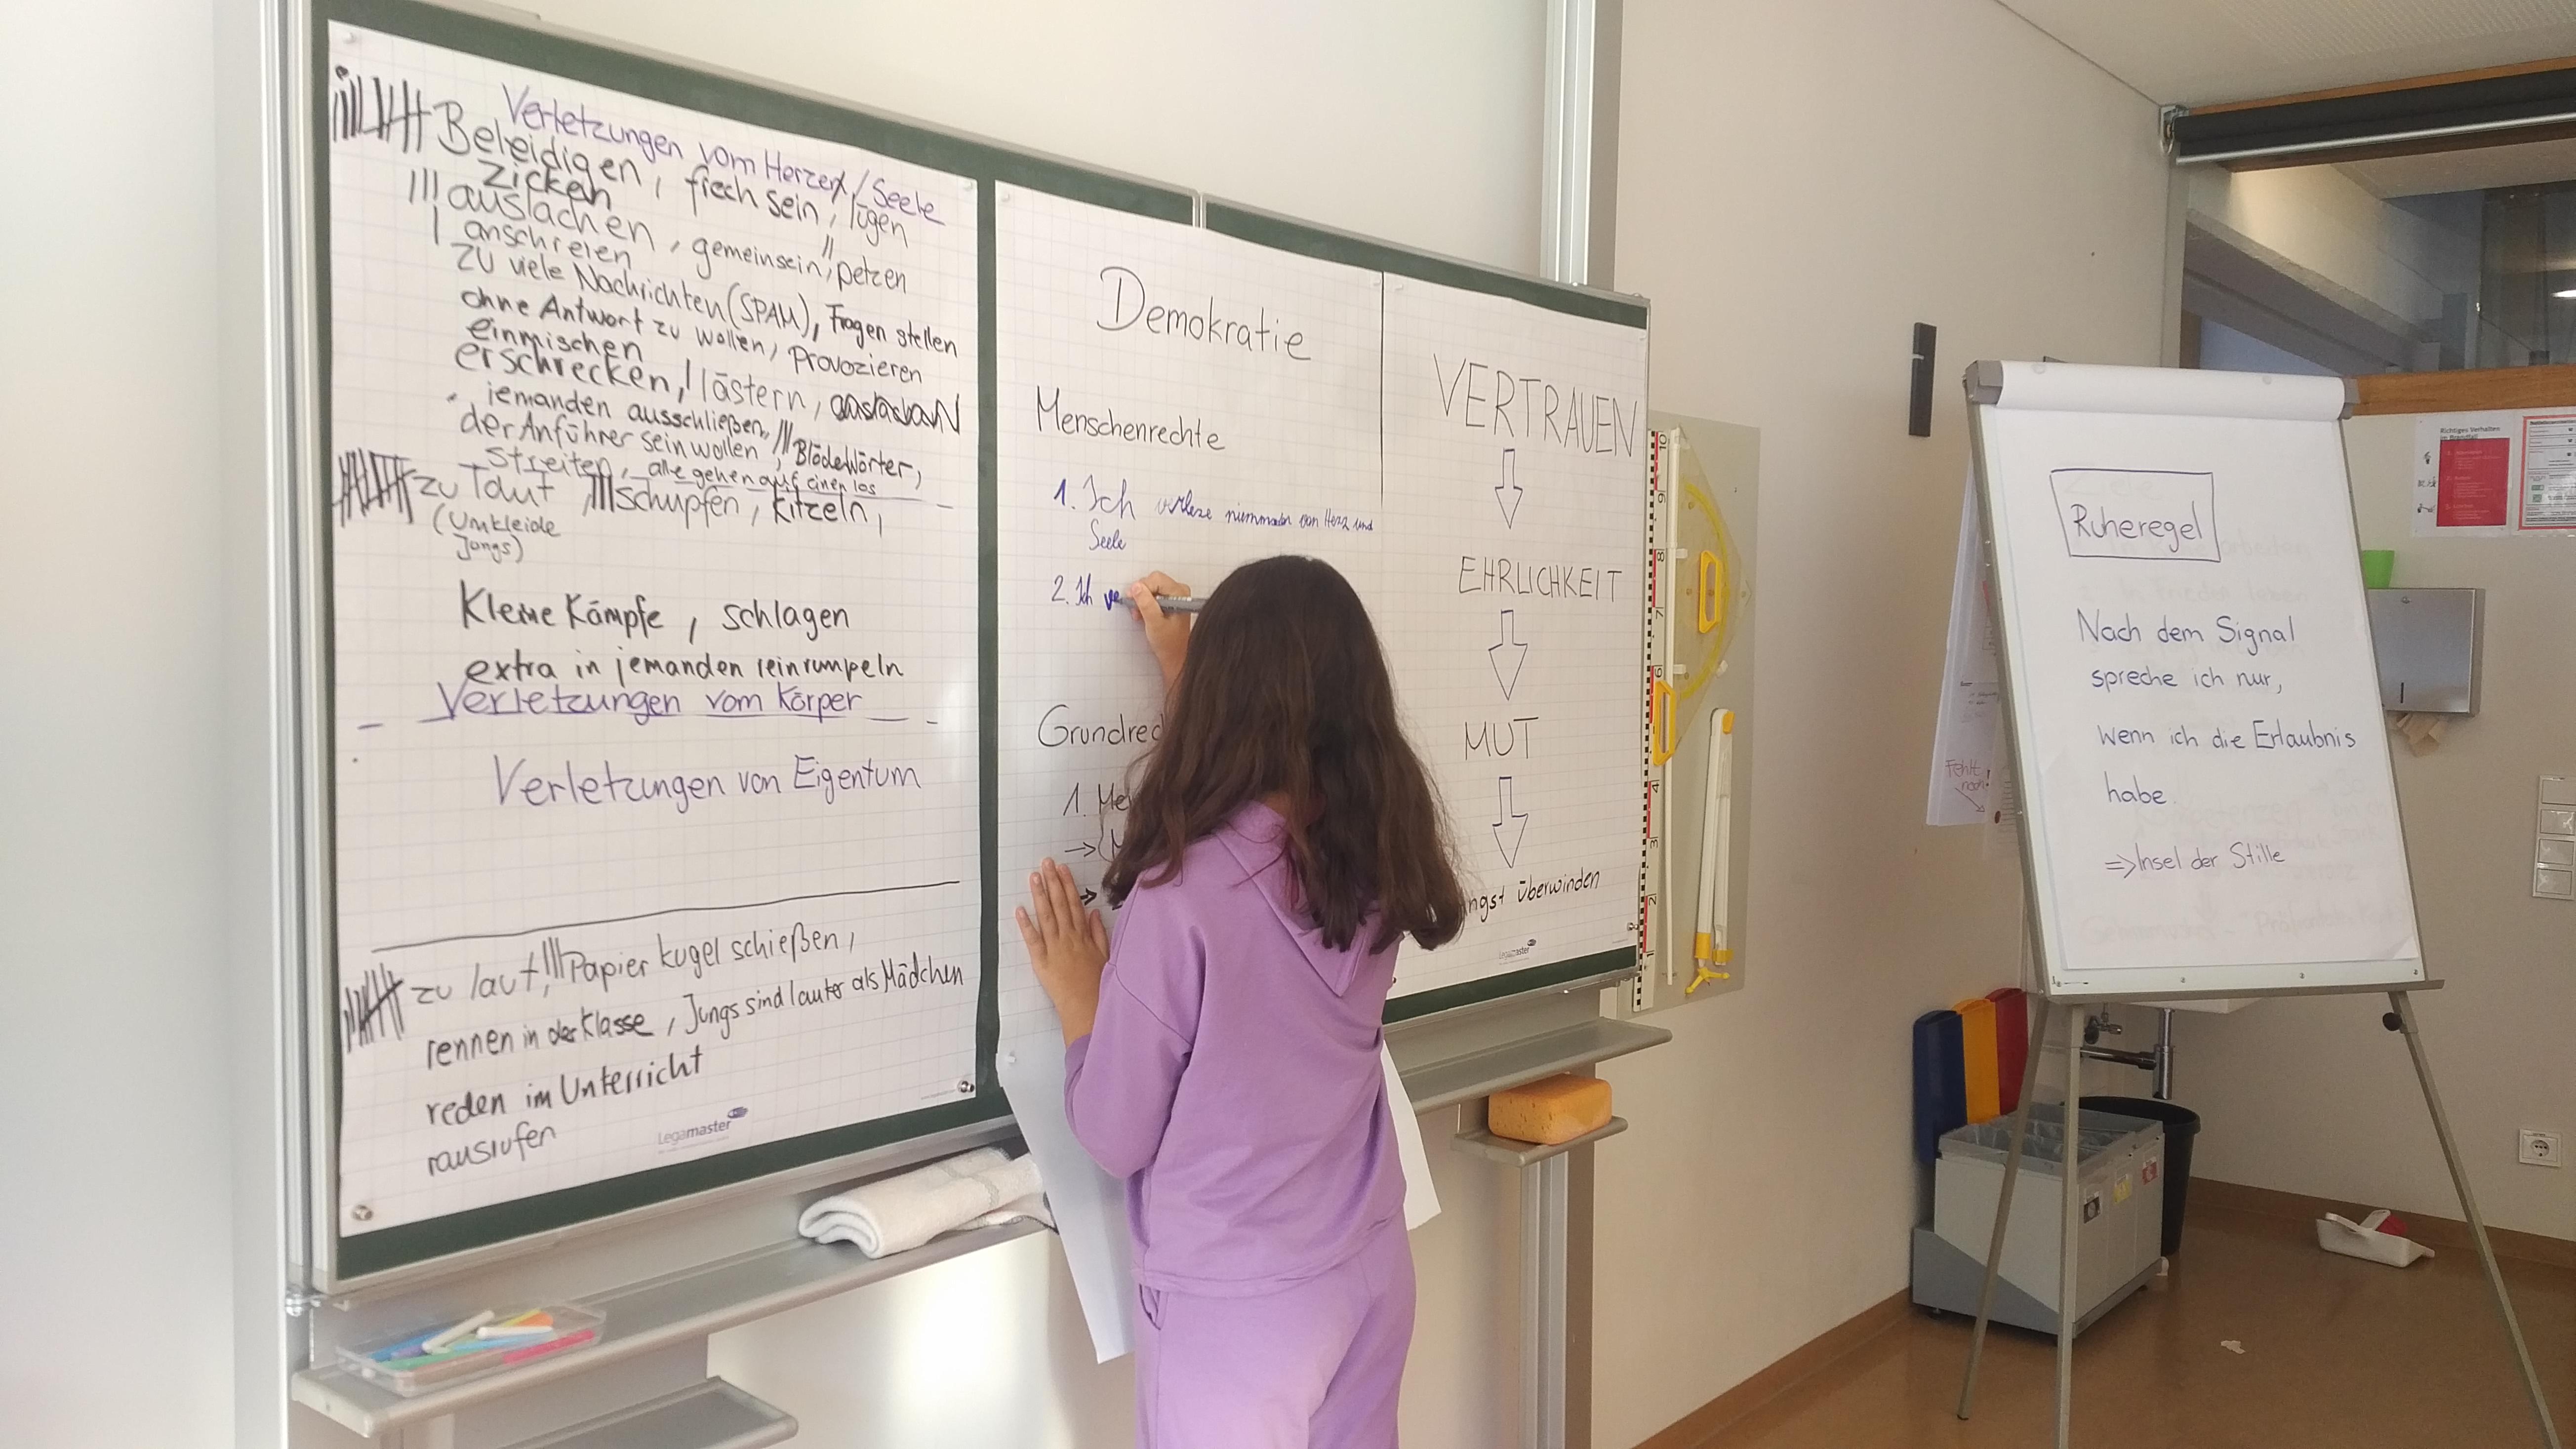 Verletzungen vom Herzen/Seele
Beleidigen, frech sein, lügen
zicken
auslachen, gemeinsein, petzen
anschreien
zu viele Nachrichten (SPAM), Fragen stellen
ohne Antwort zu wollen, Provozieren
einmischen
erschrecken, lästern,
jemanden ausschließen,
der Anführer sein wollen, Blöde Wörter,
streiten, alle gehen auf einen los
zu laut schupfen, kitzeln,
(Umkleide
Jungs)
Kleine Kämpfe, schlagen
extra in jemanden reinrumpeln
Verletzungen vom Körper
Verletzungen von Eigentum
zu laut, Papier kugel schießen,
rennen in der Klasse, Jungs sind lauter als Mädchen
reden im Unterricht
rausrufen
Legamaster
Demokratie
Menschenrechte
1. Ich verleze niemmadn von Herz und
Seele
2. Ich ve
Grundrec
1. Me
VERTRAUEN
EHRLICHKEIT
MUT
ngst überwinden
Legamaster
10
9
8
7
6
4
3
2
1
Fehlt
noch!
Ruheregel
Nach dem Signal
spreche ich nur,
wenn ich die Erlaubnis
habe.
=> Insel der Stille
Richtiges Verhalten
im Brandfall